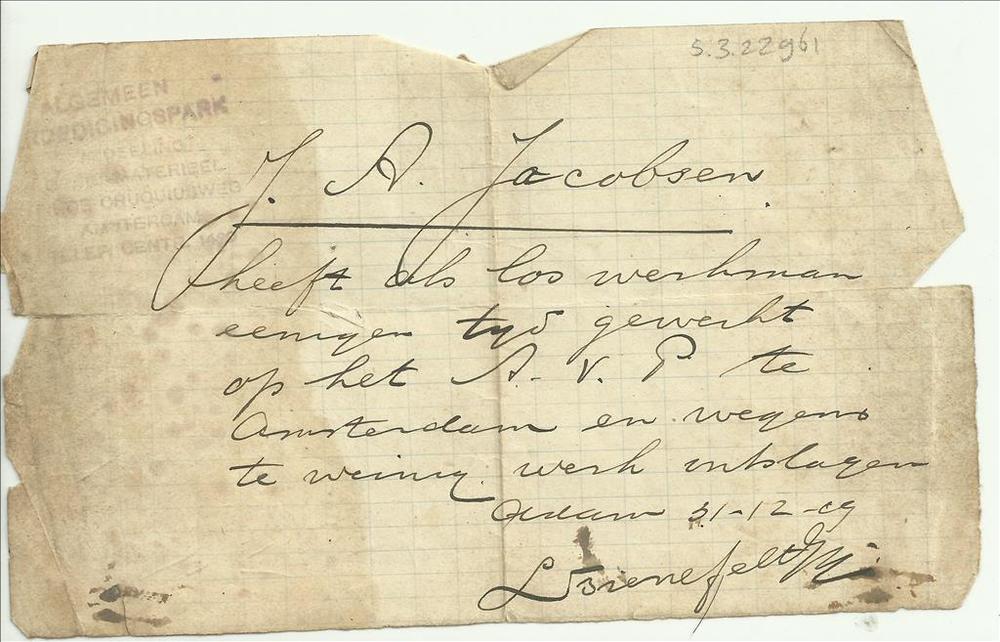 5.3.22961
ALGEMEEN
VORDIGINGSPARK
AFDEELING
MATERIEEL
CRUQUIUSWEG
AMSTERDAM
TELEF. CENTR.
J. A. Jacobsen
heeft als los werkman
eenigen tyd gewerkt
op het A. V. P te
Amsterdam en wegens
te weinig werk ontslagen
Adam 31-12-19